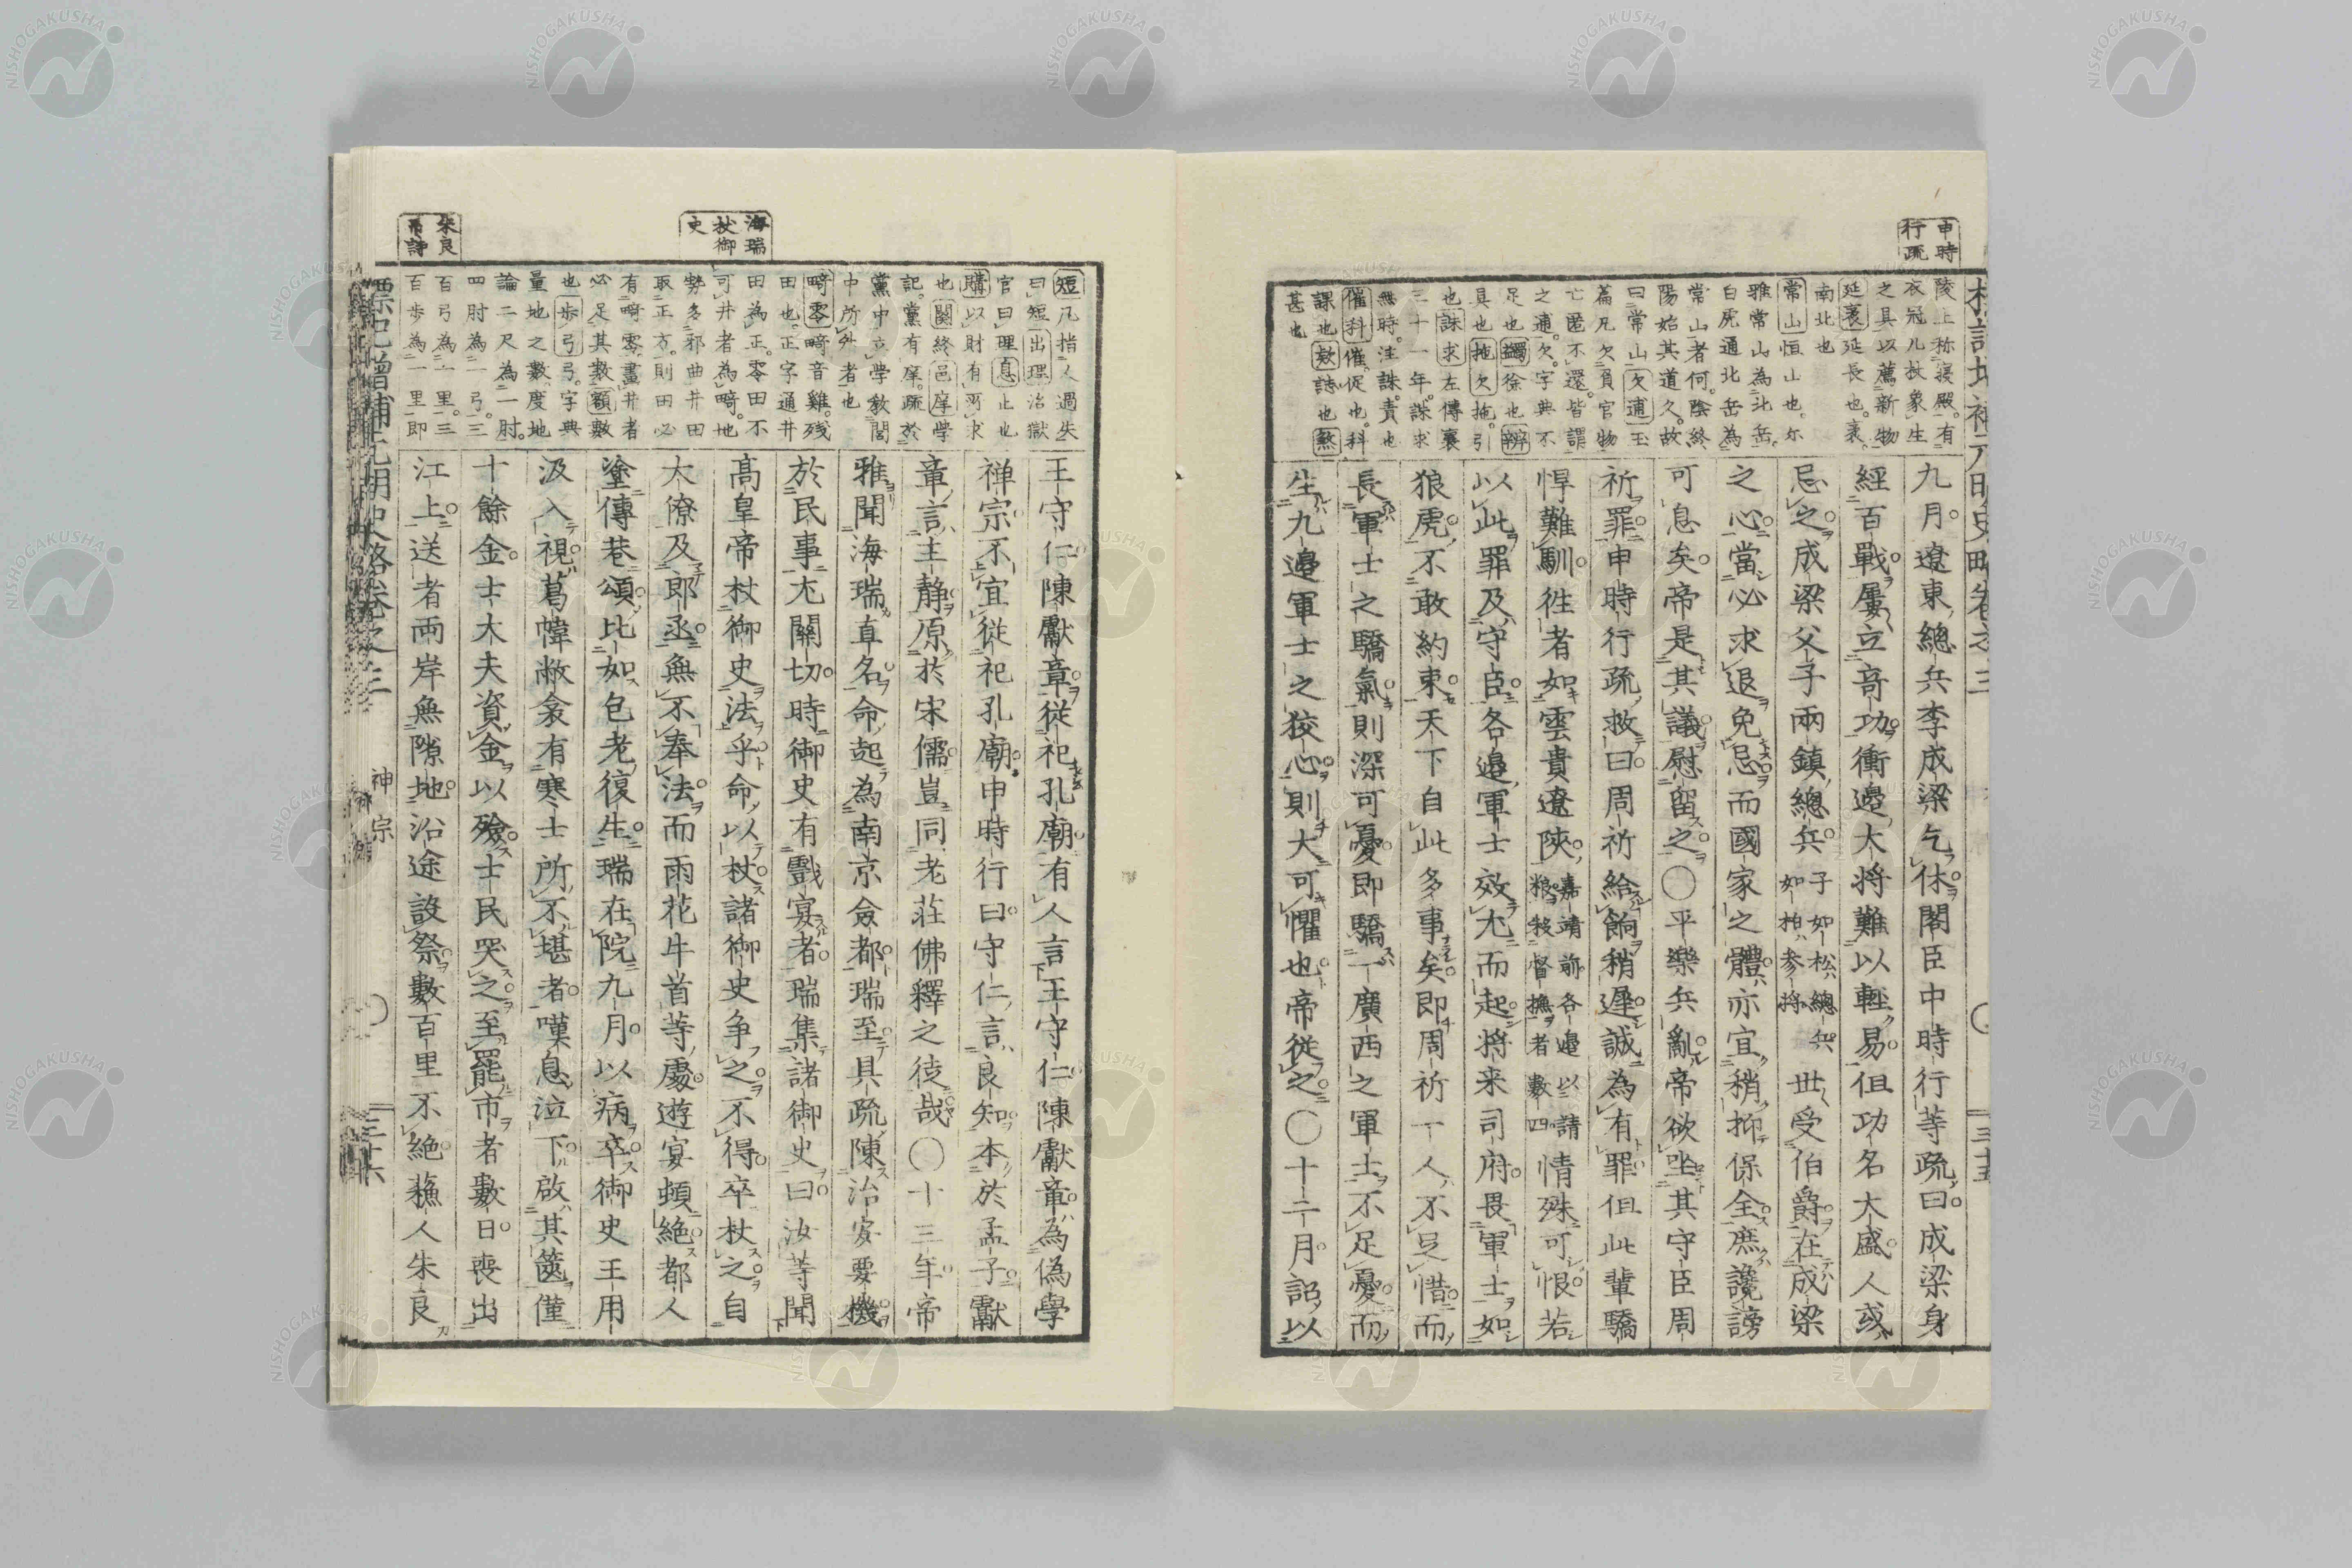 申時
行疏
陵上称寝殿有
衣冠几杖象生
之具以薦新物
延袤延長也袤
南北也
常山恒山也尓
雅常山為北岳
白虎通北岳為
常山者何陰終
陽始其道久故
曰常山欠逋玉
篇凡欠負官物
亡匿不還皆謂
之逋欠字典不
足也蠲徐也辨
具也拖欠拖引
也誅求左傳襄
三十一年誅求
無時注誅責也
催科催促也科
課也款誌也煞
甚也
九月遼東總兵李成梁乞休閣臣申時行等疏曰成梁身
經百戰屢立竒功衝邊大将難以輕易但功名大盛人或
忌之成梁父子兩鎮總兵子如松總兵如柏參将世受伯爵在成梁
之心當必求退免忌而國家之體亦宜稍抑保全庶讒謗
可息矣帝是其議慰留之〇平樂兵亂帝欲坐其守臣周
祈罪申時行疏救曰周祈給餉稍遲誠為有罪但此輩驕
悍難馴徃者如雲貴遼陝嘉靖前各邉以請粮殺督撫者數四情殊可恨若
以此罪及守臣各邉軍士效尤而起将来司府畏軍士如
狼虎不敢約束天下自此多事矣即周祈一人不足惜而
長軍士之驕氣則深可憂即驕一廣西之軍士不足憂而
生九邉軍士之狡心則大可懼也帝從之〇十二月詔以
海瑞
杖御
史
朱良
吊詩
短凡指人過失
曰短出理治獄
官曰理息止也
購以財有所求
也闋終邑摩學
記黨有庠疏於
黨中立學教閭
中所外者也
畸零畸音雞残
田也正字通井
田為正零田不
可井者為畸地
勢多邪曲井田
取正方則田必
有畸零畫井者
必足其數額數
也歩弓弓字典
量地之數度地
論二尺為一肘
四肘為一弓三
百弓為一里三
百歩為一里即
王守仁陳獻章從祀孔廟有人言王守仁陳獻章為偽學
禅宗不宜從祀孔廟申時行曰守仁言良知本於孟子獻
章言主静原於宋儒豈同老莊佛釋之徒哉〇十三年帝
雅聞海瑞直名命起為南京僉都瑞至具疏陳治安要機
於民事尤關切時御史有戲宴者瑞集諸御史曰汝等聞
髙皇帝杖御史法乎命以杖諸御史争之不得卒杖之自
大僚及郎丞無不奉法而雨花牛首等處遊宴頓絶都人
塗傳巷頌比如包老復生瑞在院九月以病卒御史王用
汲入視葛幃敝衾有寒士所不堪者嘆息泣下啟其篋僅
十餘金士大夫資金以殮士民哭之至罷市者數日喪出
江上送者両岸無隙地沿途設祭數百里不絶蘓人朱良
神宗
三十六